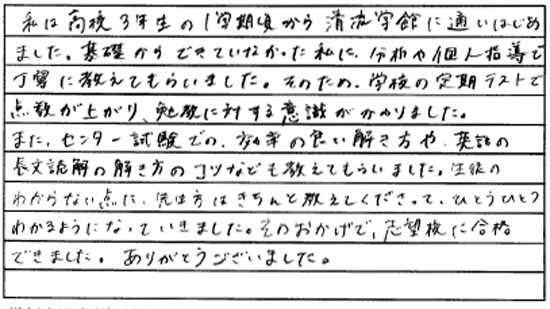 私は高校3年生の1学期頃から清流学館に通いはじめ
ました。基礎からできていなかった私に、分析や個人指導で
丁寧に教えてもらいました。そのため、学校の定期テストで
点数が上がり、勉強に対する意識がかわりました。
また、センター試験での、効率の良い解き方や、英語の
長文読解の解き方のコツなども教えてもらいました。生徒の
わからない点に、先生方はきちんと教えてくださって、ひとつひとつ
わかるようになっていきました。そのおかげで、志望校に合格
できました。ありがとうございました。